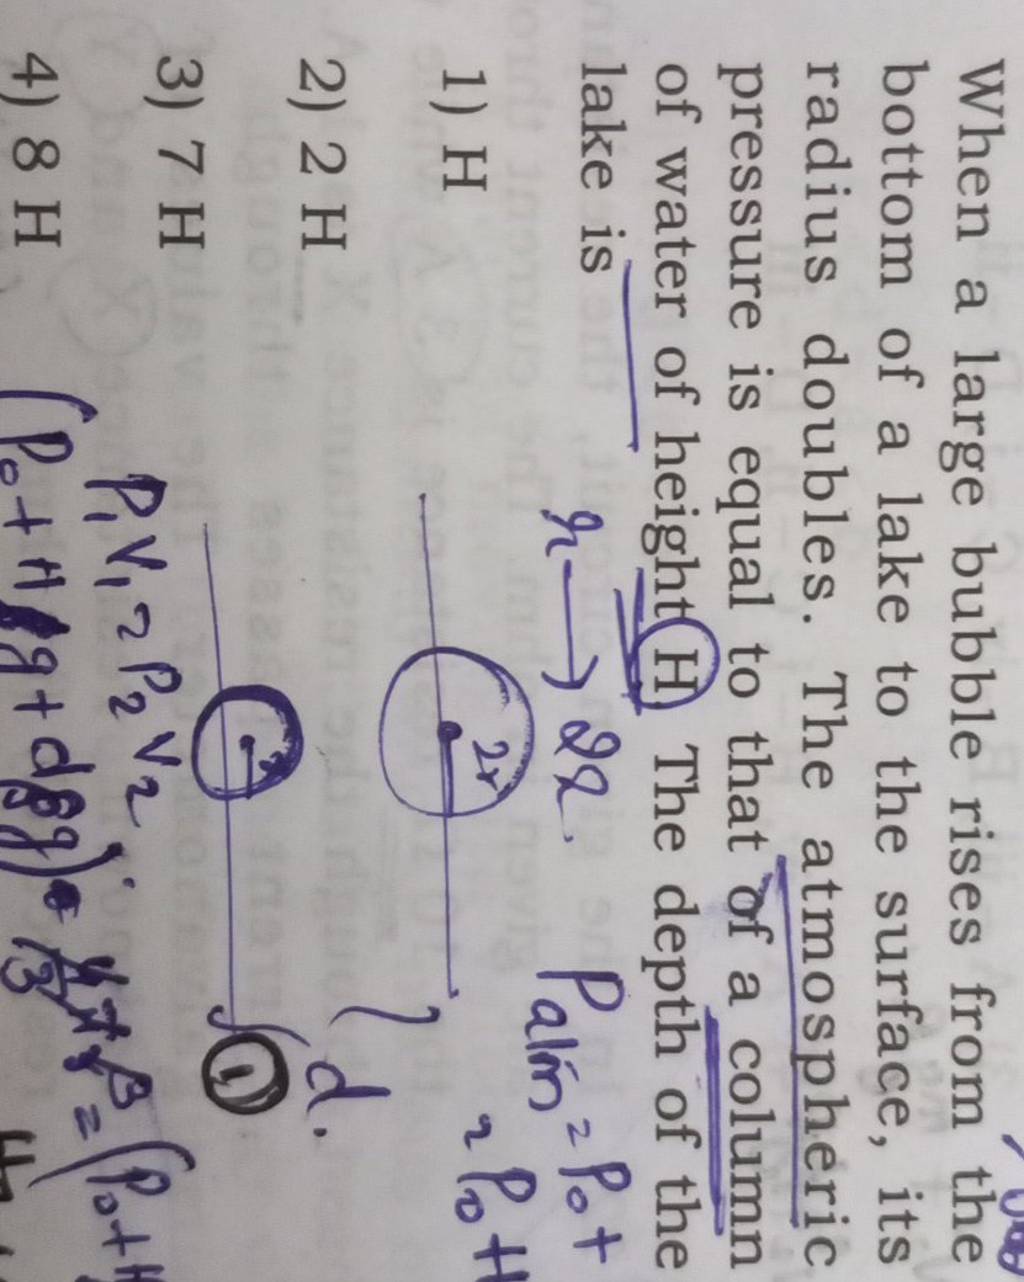 When a large bubble rises from the
bottom of a lake to the surface, its
radius doubles. The atmospheric
pressure is equal to that of a column
of water of height H The depth of the
lake is
1) H
2) 2 H
3) 7 H
4) 8 H
r → 2r.
Patm = P0 +
= P0 + H
2r
d.
1
P1V1 = P2V2